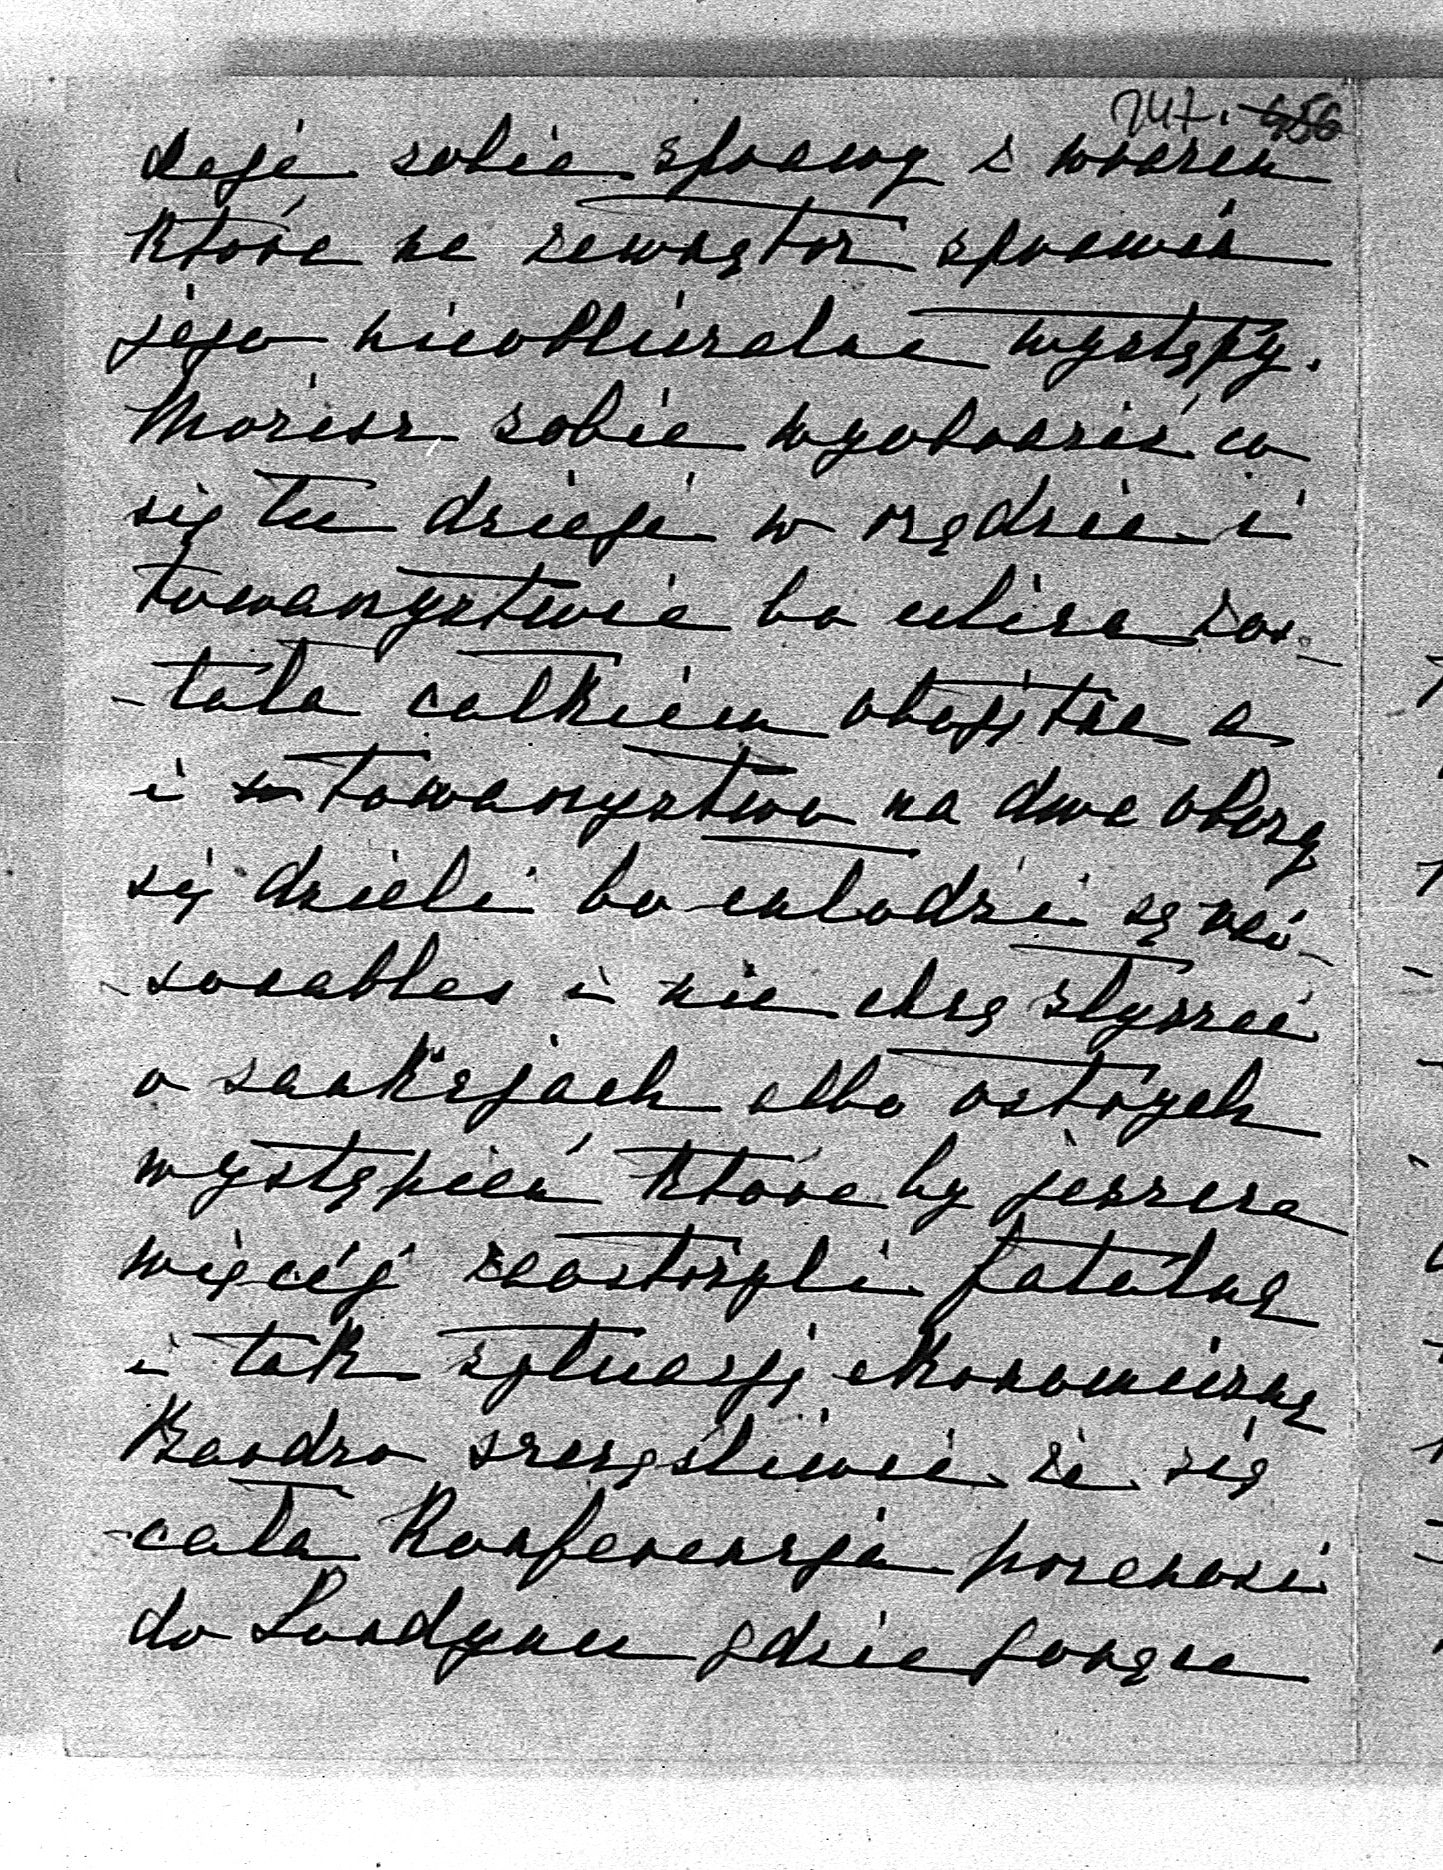 747. 656
daje sobie sprawy z wrażeń
które na zewnątrz sprawia
jego nieobliczalne występy.
Możesz sobie wyobrazić co
się tu dzieje w rządzie i
towarzystwie bo ulica zos-
-tała całkiem obojętna a
i towarzystwo na dwa obozy
się dzieli bo młodzi są rai-
-sonables i nie chcą słyszeć
o sankcjach albo ostrych
wystąpień które by jeszcze
więcéj zaostrzyli fatalną
i tak sytuację ekonomiczną
Bardzo szczęśliwie że się
cała Konferencja przenosi
do Londynu gdzie gorące